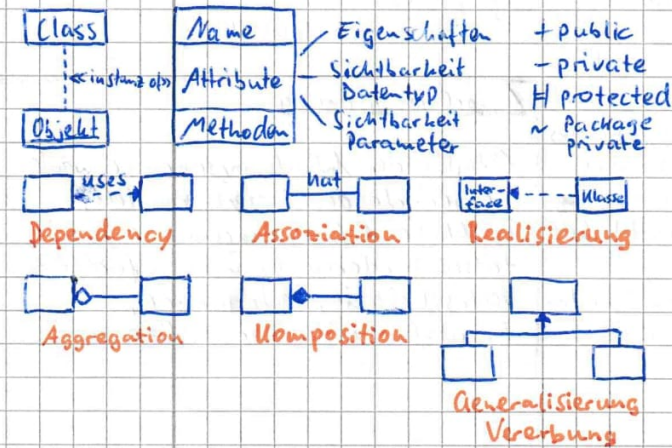 Class
«instanz of»
Objekt
Name
Attribute
Methoden
Eigenschaften
Sichtbarkeit
Datentyp
Sichtbarkeit
Parameter
+ public
- private
# protected
~ Package
private
uses
Dependency
hat
Assoziation
Inter-
face
Klasse
Realisierung
Aggregation
Komposition
Generalisierung
Vererbung